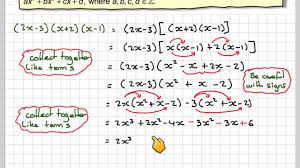 ax³ + bx² + cx + d, where a, b, c, d ∈ ℤ.
(2x-3)(x+2)(x-1) = (2x-3)[(x+2)(x-1)]
= (2x-3)[x(x-1)+2(x-1)]
collect together
Like term s
= (2x-3)(x²-x+2x-2)
= (2x-3)(x²+x-2)
Be careful
with signs
= 2x(x²+x-2)-3(x²+x-2)
collect together
Like term s
= 2x³+2x²-4x-3x²-3x+6
= 2x³